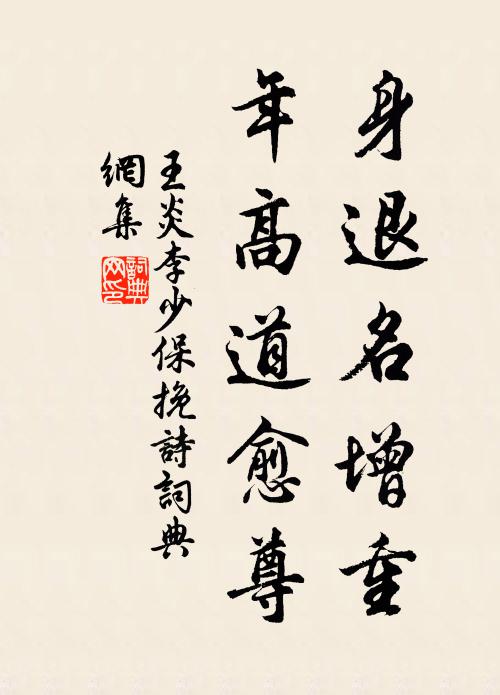 身退名增重
年高道愈尊
王炎李少保挽詩詞典
網集
詞典網印